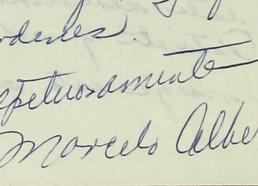 rdenes.
spetuosamente
Marcelo Albe